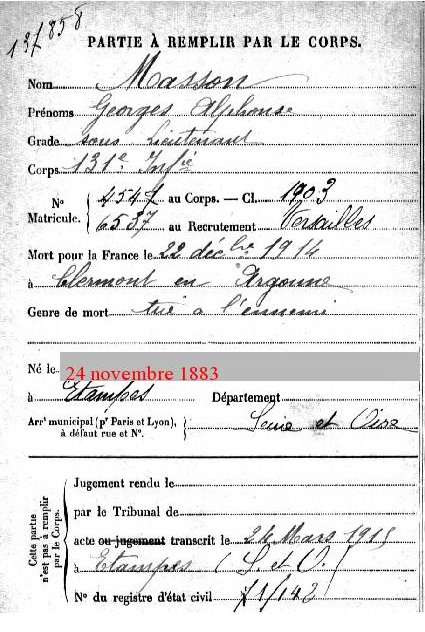 137858
PARTIE À REMPLIR PAR LE CORPS.
Nom Masson
Prénoms Georges Alphonse
Grade sous Lieutenant
Corps 131e Infie
No Matricule. 4547 au Corps. — Cl. 1903
6537 au Recrutement Versailles
Mort pour la France le 22 décbre 1914
à Clermont en Argonne
Genre de mort tué à l'ennemi
Né le 24 novembre 1883
à Etampes Département
Arrt municipal (pr Paris et Lyon), à défaut rue et No. Seine et Oise
Cette partie n'est pas à remplir par le Corps.
Jugement rendu le
par le Tribunal de
acte ou jugement transcrit le 24 Mars 1915
à Etampes (S et O)
No du registre d'état civil 71/142